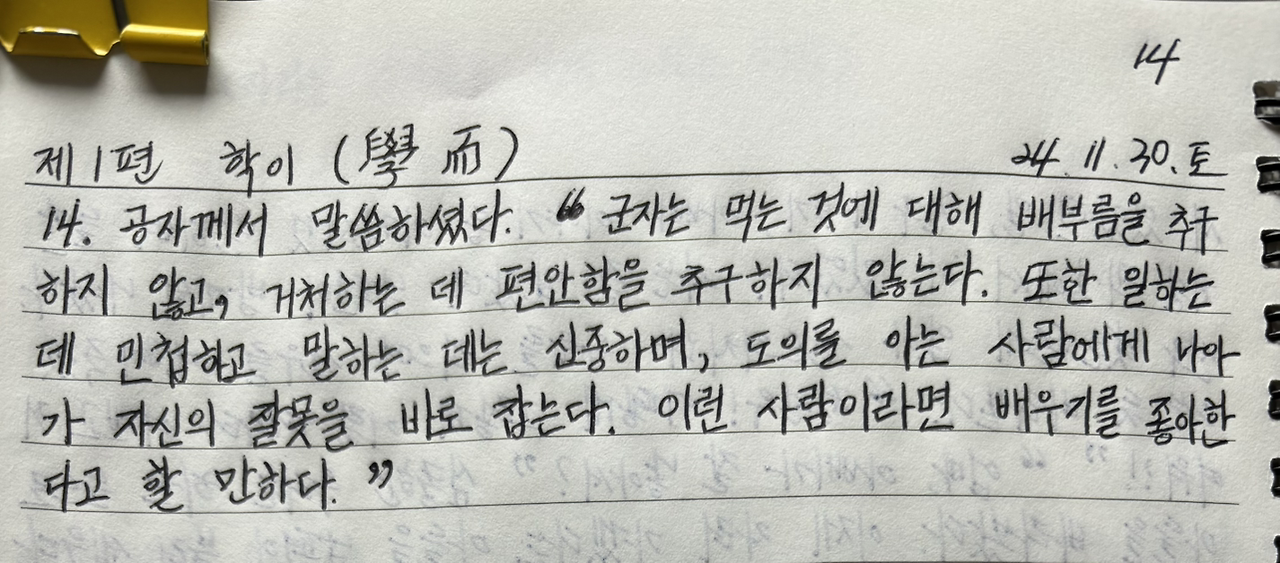 14
제1편 학이 (學而) 24. 11. 30. 토
14. 공자께서 말씀하셨다. “군자는 먹는 것에 대해 배부름을 추구
하지 않고, 거처하는 데 편안함을 추구하지 않는다. 또한 일하는
데 민첩하고 말하는 데는 신중하며, 도의를 아는 사람에게 나아
가 자신의 잘못을 바로 잡는다. 이런 사람이라면 배우기를 좋아한
다고 할 만하다.”